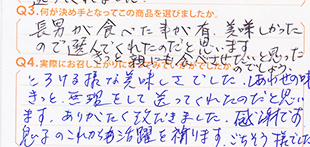 Q3.何が決め手となってこの商品を選びましたか。
長男が食べた事が有、美味しかった
ので選んでくれたのだと思います
親にも食べさせたいと思った
のでしょう。
Q4.実際にお召し上がりに
とろける様な美味しさでした。しあわせの味
きっと、無理をして送ってくれたのだと思い
ます。ありがたく頂だきました。感謝です
息子のこれからの活躍を祈ります。ごちそう様でした